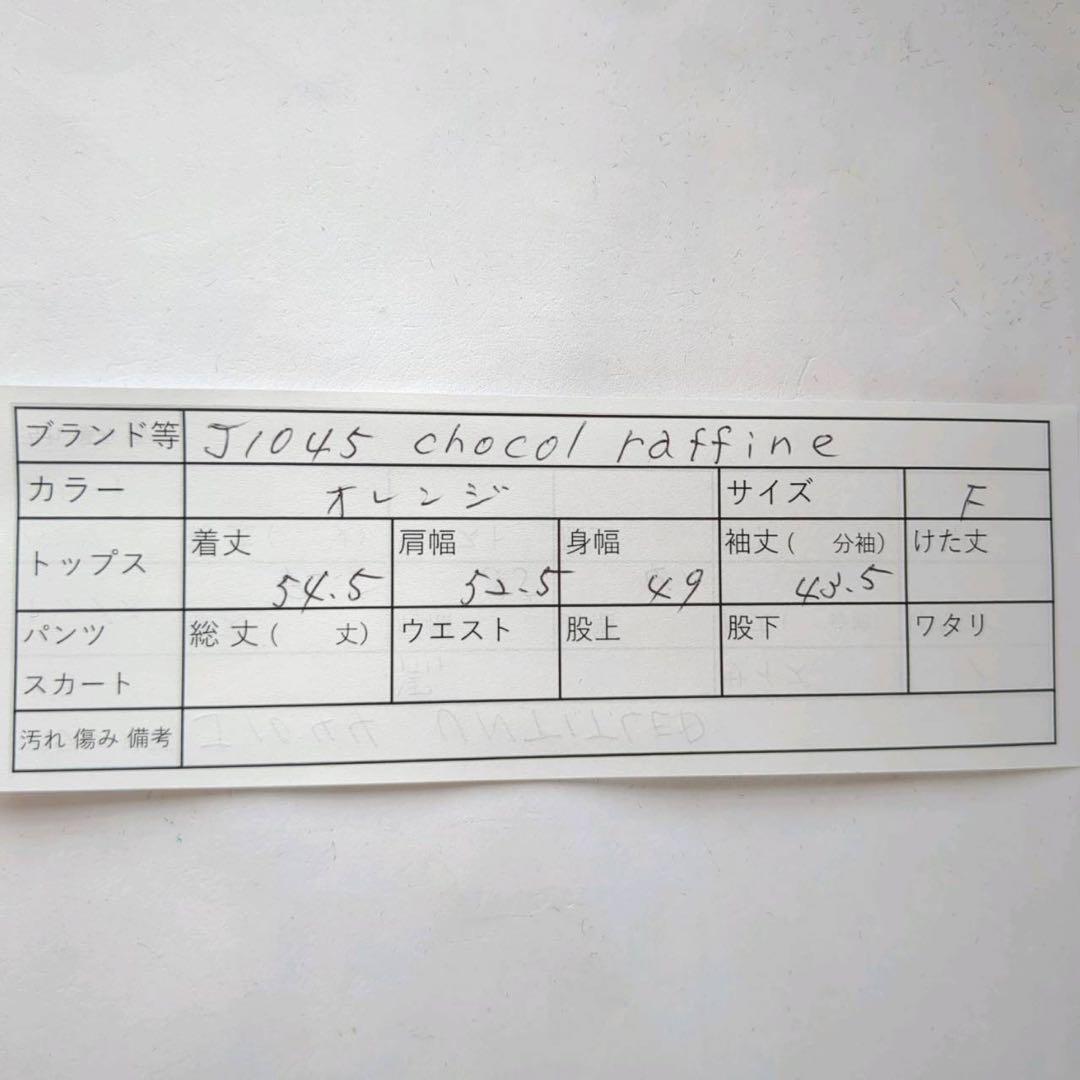 ブランド等 J1045 chocol raffine
カラー オレンジ サイズ F
トップス 着丈 54.5 肩幅 52.5 身幅 49 袖丈( 分袖) 43.5 けた丈
パンツ スカート 総丈( 丈) ウエスト 股上 股下 ワタリ
汚れ 傷み 備考 J1044 UNTITLED